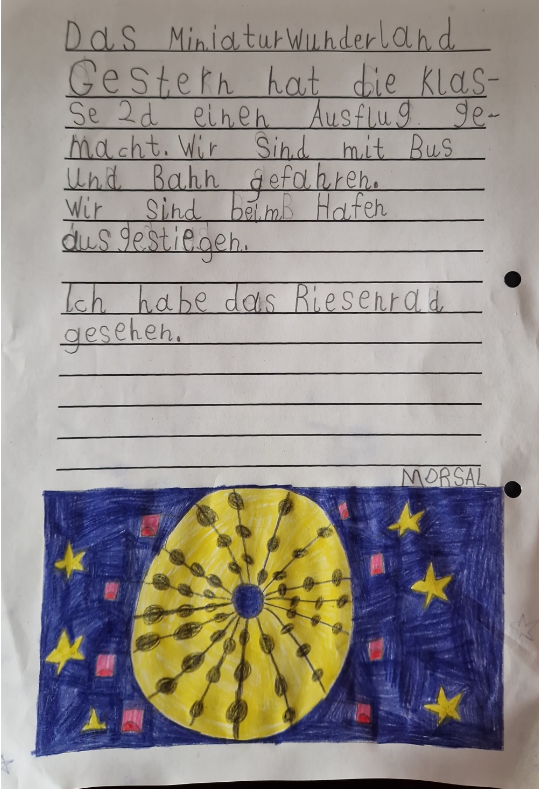 Das Miniaturwunderland
Gestern hat die Klas-
se 2d einen Ausflug ge-
macht. Wir sind mit Bus
und Bahn gefahren.
Wir sind beim Hafen
ausgestiegen.
Ich habe das Riesenrad
gesehen.
MORSAL